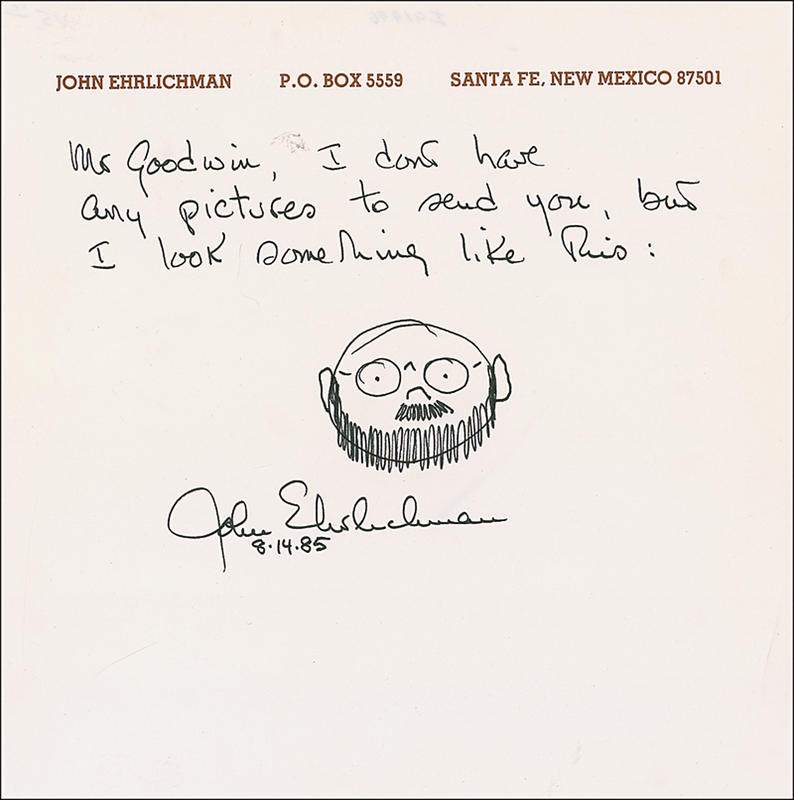 JOHN EHRLICHMAN P.O. BOX 5559 SANTA FE, NEW MEXICO 87501
Mr Goodwin, I dont have
any pictures to send you, but
I look something like this:
John Ehrlichman
8.14.85